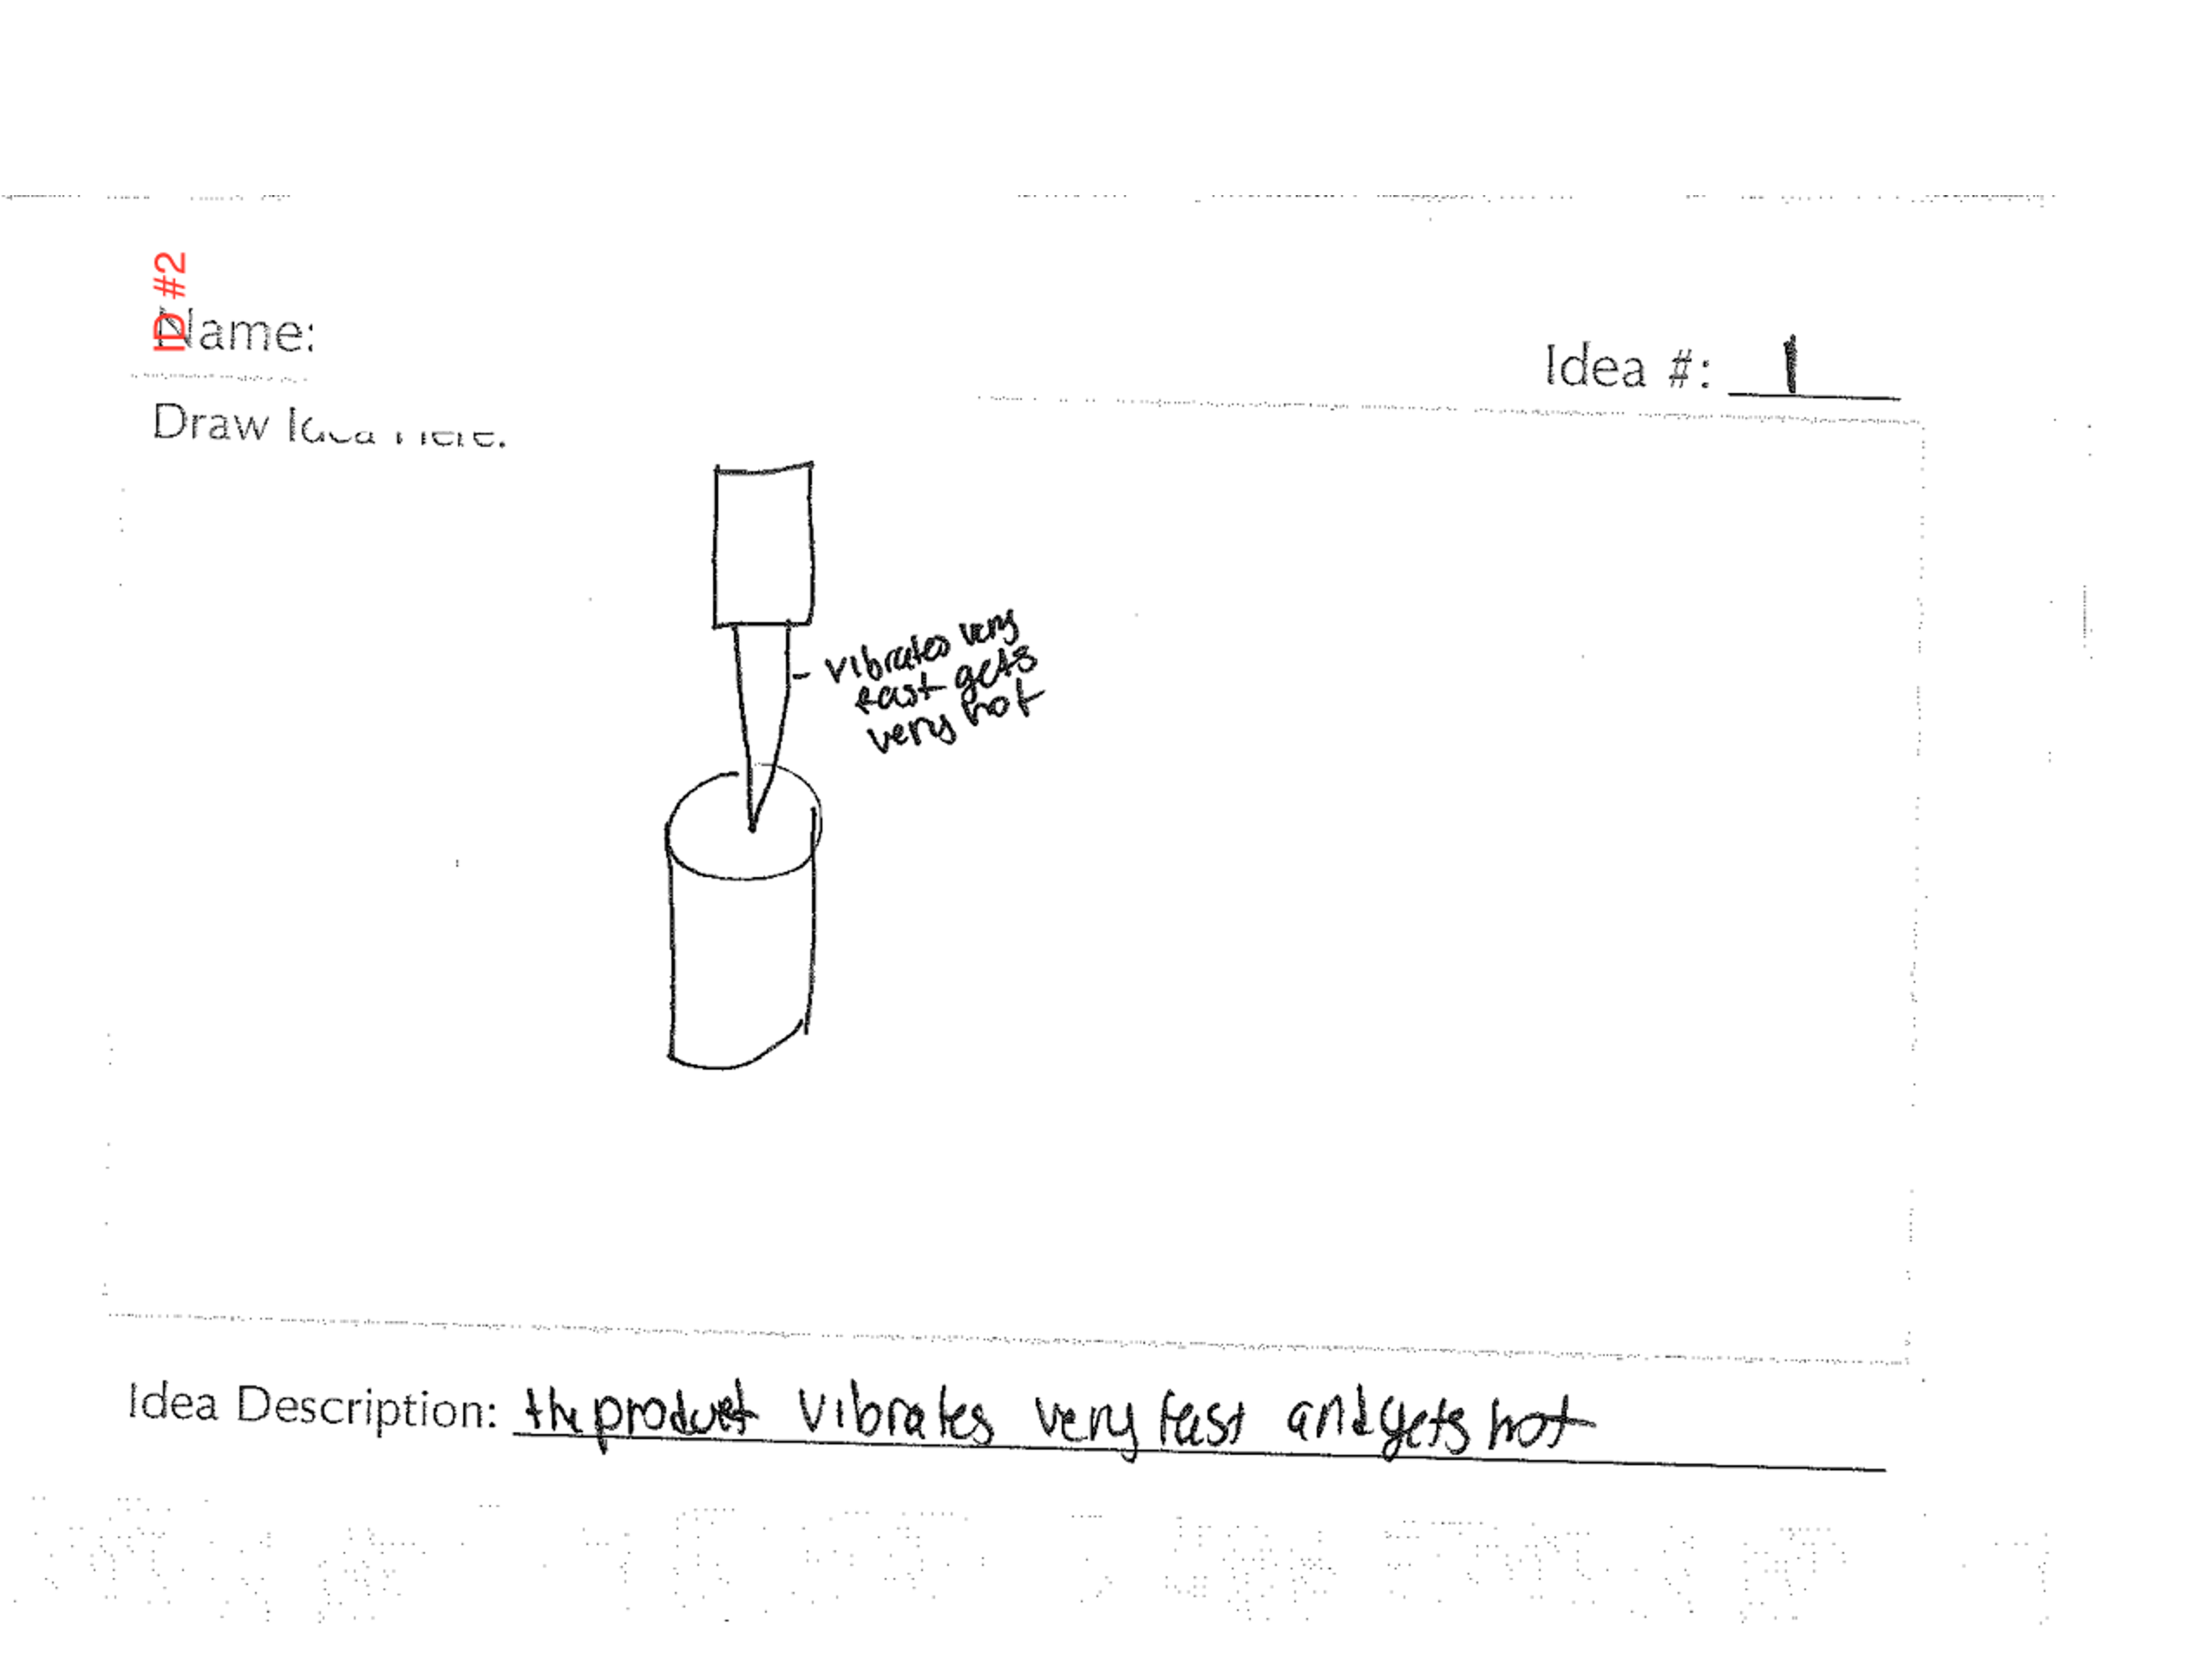 ID #2
Name:
Idea #: 1
Draw Idea Here:
vibrates very
fast gets
very hot
Idea Description: the product vibrates very fast and gets hot